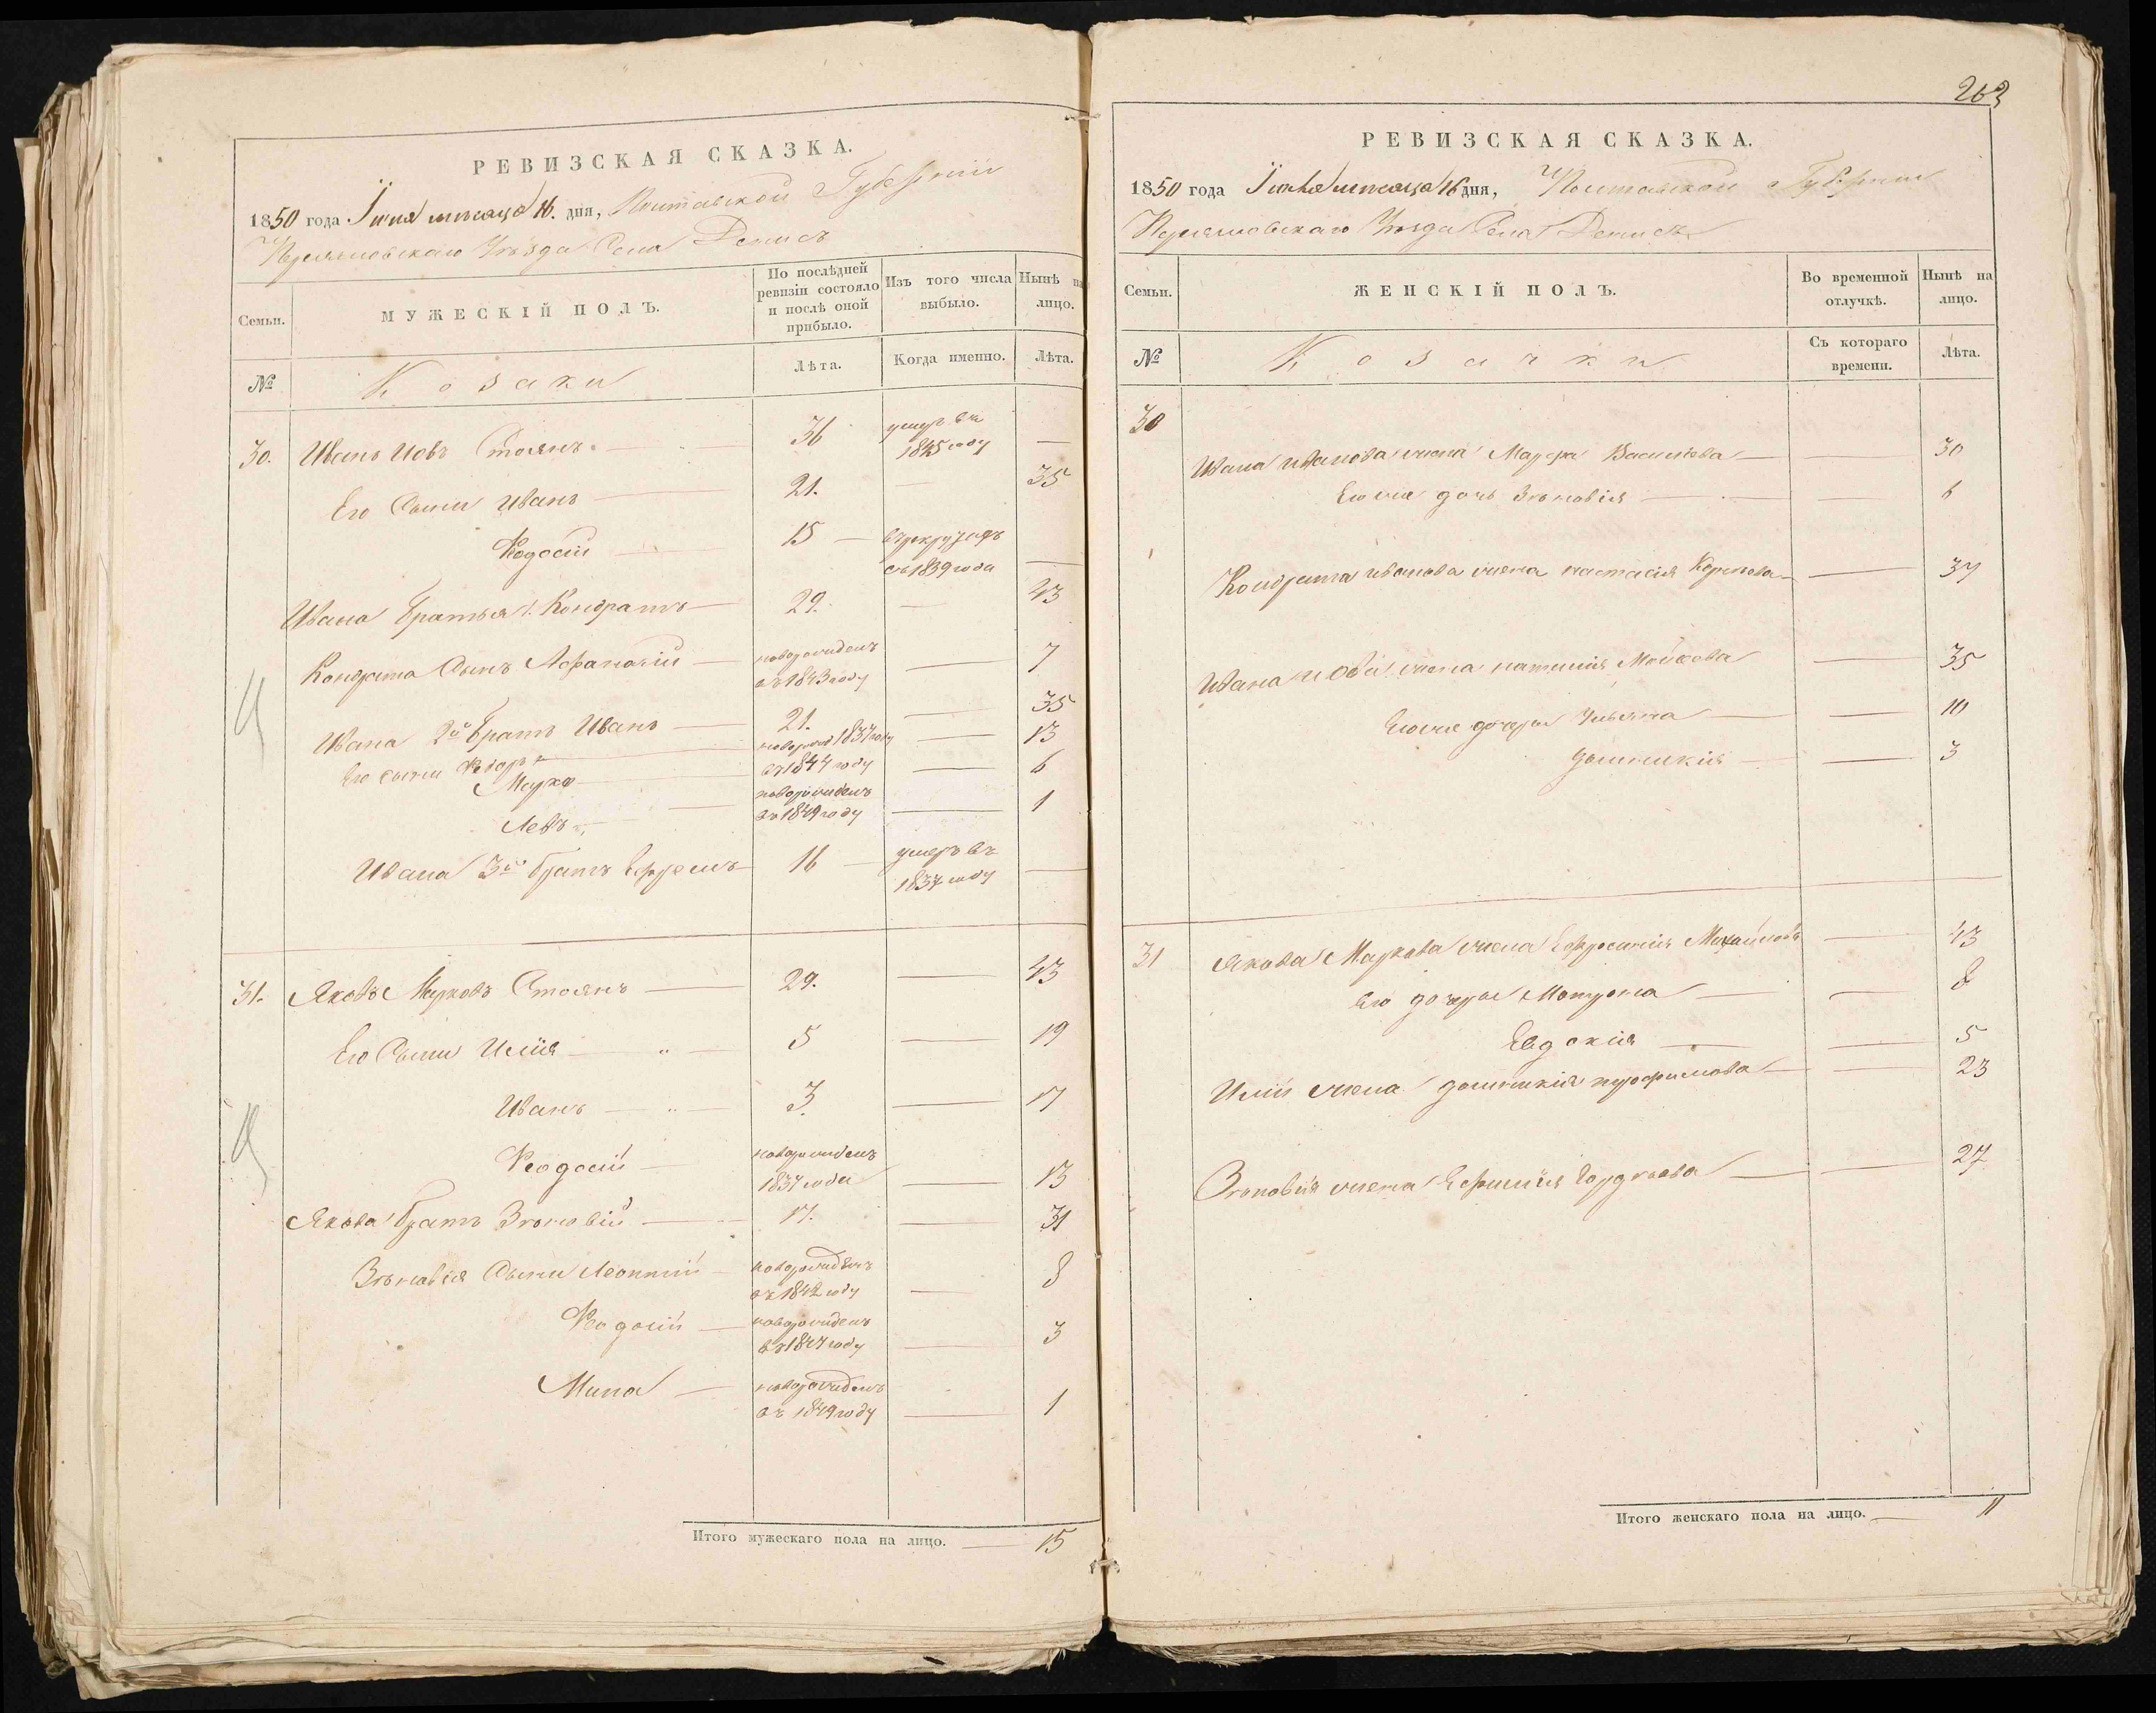 РЕВИЗСКАЯ СКАЗКА.
1850 года Іюня мѣсяца 16. дня, Полтавской Губерніи
Переяславскаго Уѣзда Села Денисъ
Семьи.
МУЖЕСКІЙ ПОЛЪ.
По послѣдней ревизіи состояло и послѣ оной прибыло.
Изъ того числа выбыло.
Нынѣ на лицо.
№
Козаки
Лѣта.
Когда именно.
Лѣта.
30. Иванъ Іовъ Стоянъ. — 36 умеръ въ 1845 году —
Его Сыны Иванъ — 21. — 35
Федосій — 15 — въ рекрутахъ съ 1839 года —
Ивана братья 1. Кондратъ — 29. — 43
Кондрата Сынъ Афанасій — новорожденъ въ 1843 году — 7
Ивана 2й братъ Иванъ — 21. — 35
Его сыны Федоръ — новорож 1837 году — 13
Марко — въ 1844 году — 6
Левъ — новорожденъ въ 1849 году — 1
Ивана 3й братъ Ефремъ — 16 — умеръ въ 1837 году —
31. Яковъ Марковъ Стоянъ — 29. — 43
Его Сыны Илія — 5 — 19
Иванъ — 3. — 17
Феодосій — новорожденъ 1837 года — 13
Якова братъ Зѣновій — 17. — 31
Зѣновія Сыны Леонтій — новорожденъ въ 1842 году — 8
Феодосій — новорожденъ въ 1847 году — 3
Мина — новорожденъ въ 1849 году — 1
Итого мужескаго пола на лицо. — 15
263
РЕВИЗСКАЯ СКАЗКА.
1850 года Іюня мѣсяца 16 дня, Полтавской Губерніи
Переяславскаго Уѣзда Села Денисъ
Семьи.
ЖЕНСКІЙ ПОЛЪ.
Во временной отлучкѣ.
Нынѣ на лицо.
№
Козачки
Съ котораго времени.
Лѣта.
30
Ивана Иванова жена Марфа Василева — — 30
Его же дочь Зѣновія — — 6
Кондрата Иванова жена Настасія Карпова — — 37
Ивана Іова жена Наталія — 35
Его же дочери Уляна — — 10
Домникія — — 3
31 Якова Маркова жена Ефросинія Михайлова — 43
Его дочери Мотрона — — 8
Евдокія — — 5
Иліи жена Домникія Трофимова — — 23
Зѣновія жена Ефимія Гордѣева — — 27
Итого женскаго пола на лицо. — 11